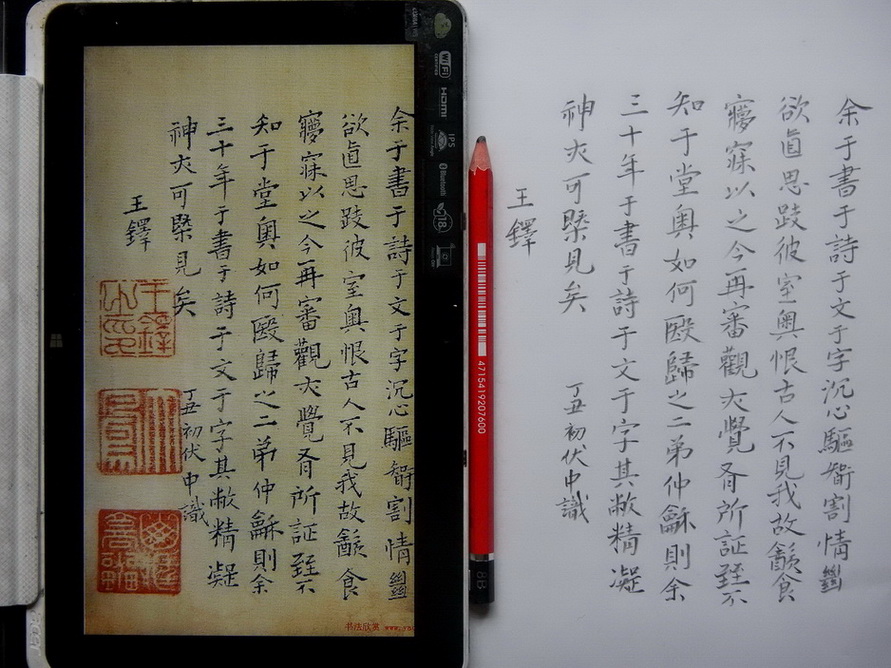 余于書于詩于文于字沉心驅智割情㡭
欲直思跂彼室奧恨古人不見我故飻食
寢寐以之今再審觀大覺有所証臸不
知于堂奧如何殹歸之二弟仲龢則余
三十年于書于詩于文于字其敝精凝
神亦可槩見矣
丁丑初伏中識
王鐸
余于書于詩于文于字沉心驅智割情
欲直思跂彼室奧恨古人不見我故食
寐以之今再審觀大覺所証臸不
知于堂奧如何殹歸之二弟仲龢則余
三十年于書于詩于文于字其敝精凝
神可槩見矣
丁丑初伏中識
王鐸
书法欣赏
WiFi
CERTIFIED
HDMI
IPS
Bluetooth
4715419207600
8B